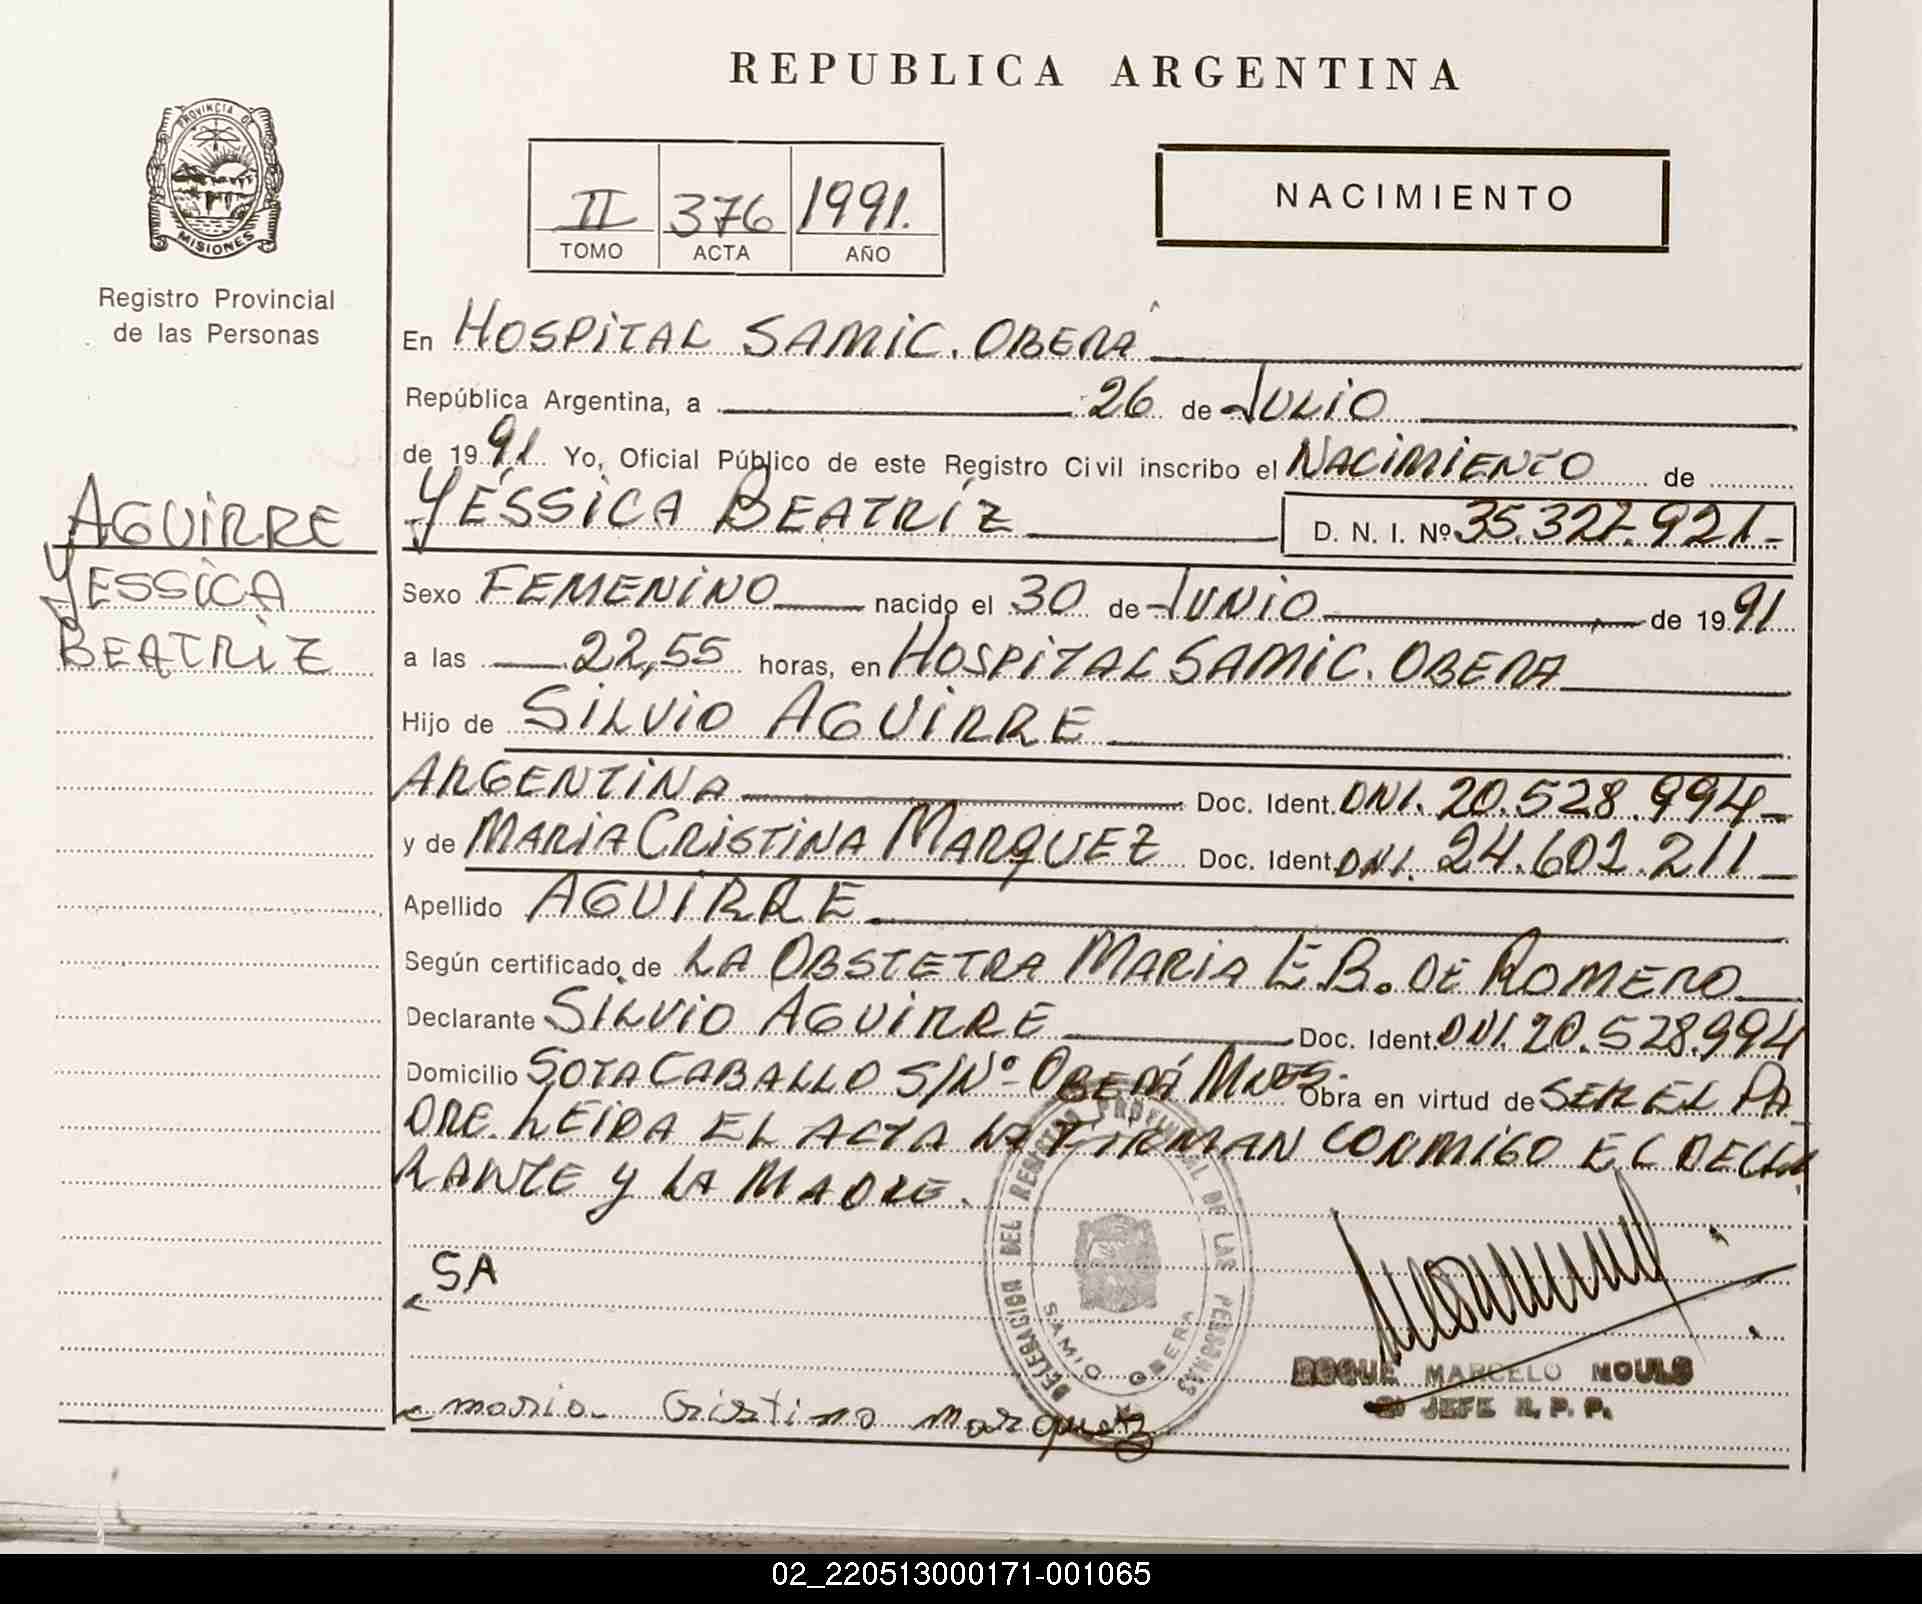 REPUBLICA ARGENTINA
PROVINCIA DE
MISIONES
Registro Provincial
de las Personas
II 376 1991.
TOMO ACTA AÑO
NACIMIENTO
AGUIRRE
YESSICA
BEATRIZ
En HOSPITAL SAMIC. OBERÁ
República Argentina, a 26 de JULIO
de 1991 Yo, Oficial Público de este Registro Civil inscribo el NACIMIENTO de
YÉSSICA BEATRÍZ D. N. I. Nº 35.327.921-
Sexo FEMENINO nacido el 30 de JUNIO de 1991
a las 22,55 horas, en HOSPITAL SAMIC. OBERA
Hijo de SILVIO AGUIRRE
ARGENTINA Doc. Ident. DNI. 20.528.994
y de MARIA CRISTINA MARQUEZ Doc. Ident. DNI. 24.601.211
Apellido AGUIRRE
Según certificado de LA OBSTETRA MARIA E.B. DE ROMERO
Declarante SILVIO AGUIRRE Doc. Ident. DNI. 20.528.994
Domicilio SOTA CABALLO S/Nº- OBERÁ MNES. Obra en virtud de SER EL PA
DRE. LEIDA EL ACTA LA FIRMAN CONMIGO EL DECLA
RANTE Y LA MADRE.
DELEGACION DEL REGISTRO PROVINCIAL DE LAS PERSONAS
SAMIC OBERA
SA
ROQUE MARCELO
JEFE R. P. P.
maria Cristina marquez
02_220513000171-001065